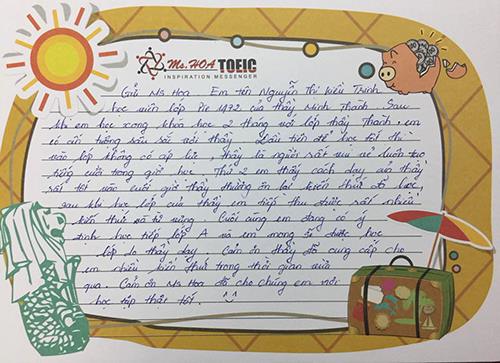 Ms. HOA TOEIC
INSPIRATION MESSENGER
Gửi Ms Hoa Em tên Nguyễn Thị Kiều Trinh
học viên lớp Pre 1472 của thầy Minh Thành Sau
khi em học xong khóa học 2 tháng với lớp thầy Thành, em
có ấn tượng sâu sắc với thầy. Đầu tiên để học tốt thì
vào lớp không có áp lực, thầy là người rất vui vẻ luôn tạo
tiếng cười trong giờ học. Thứ 2 em thấy cách dạy của thầy
rất tốt vào cuối giờ thầy thường ôn lại kiến thức đã học,
sau khi học lớp của thầy em tiếp thu được rất nhiều
kiến thức và từ vựng. Cuối cùng em đang có ý
định học tiếp lớp A và em mong sẽ được học
lớp do thầy dạy. Cảm ơn thầy đã cung cấp cho
em nhiều kiến thức trong thời gian vừa
qua. Cảm ơn Ms Hoa đã cho chúng em nơi
học tập thật tốt.